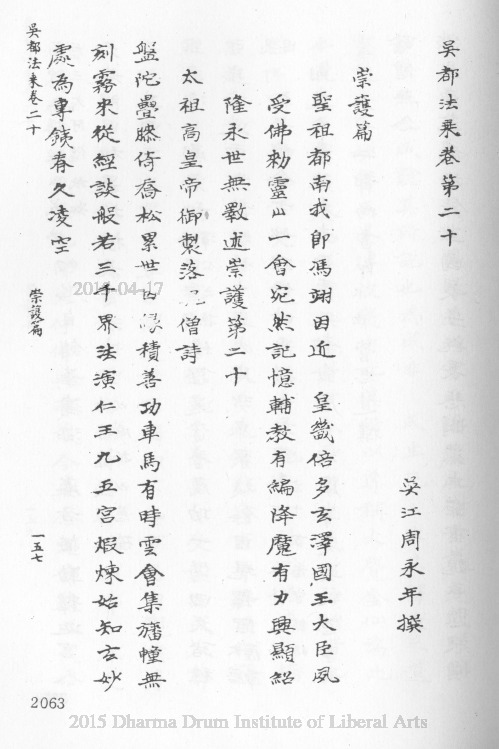 吳都法乘卷第二十
吳江周永年撰
崇護篇
聖祖都南我郎馮翊因近 皇畿倍多玄澤國王大臣夙
受佛勅靈山一會宛然記憶輔教有編降魔有力興顯紹
隆永世無斁述崇護第二十
太祖高皇帝御製落 僧詩
盤陀疊膝倚喬松累世 緣積善功車馬有時雲會集旛幢無
刻霧來從經談般若三千界法演仁王九五宮煅煉始知玄妙
處為專錢春久凌空
吳都法乘卷二十
崇護篇
一五七
2063
2015-04-17
2015 Dharma Drum Institute of Liberal Arts